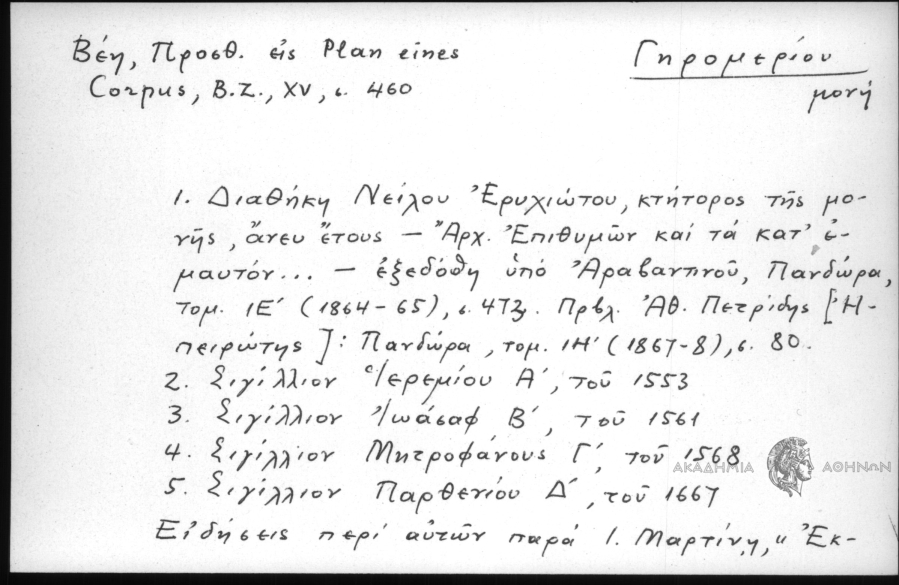 Βέη, Προσθ. εἰς Plan eines
Corpus, B.Z., XV, σ. 460
Γηρομερίου
μονή
1. Διαθήκη Νείλου Ἐρυχιώτου, κτήτορος τῆς μο-
νῆς, ἄνευ ἔτους – Ἀρχ. Ἐπιθυμῶν καί τά κατ' ἐ-
μαυτόν... – ἐξεδόθη ὑπό Ἀραβαντινοῦ, Πανδώρα,
τομ. ΙΕ' (1864-65), σ. Πρβλ. Ἀθ. Πετρίδης [Ἠ-
πειρώτης]: Πανδώρα, τομ. ΙΗ' (1867-8), σ. 80.
2. Σιγίλλιον Ἱερεμίου Α', τοῦ 1553
3. Σιγίλλιον Ἰωάσαφ Β', τοῦ 1561
4. Σιγίλλιον Μητροφάνους Γ', τοῦ 1568
5. Σιγίλλιον Παρθενίου Δ', τοῦ 1667
Εἰδήσεις περί αὐτῶν παρά Ι. Μαρτίνῃ, "Ἐκ-
ΑΚΑΔΗΜΙΑ ΑΘΗΝΩΝ